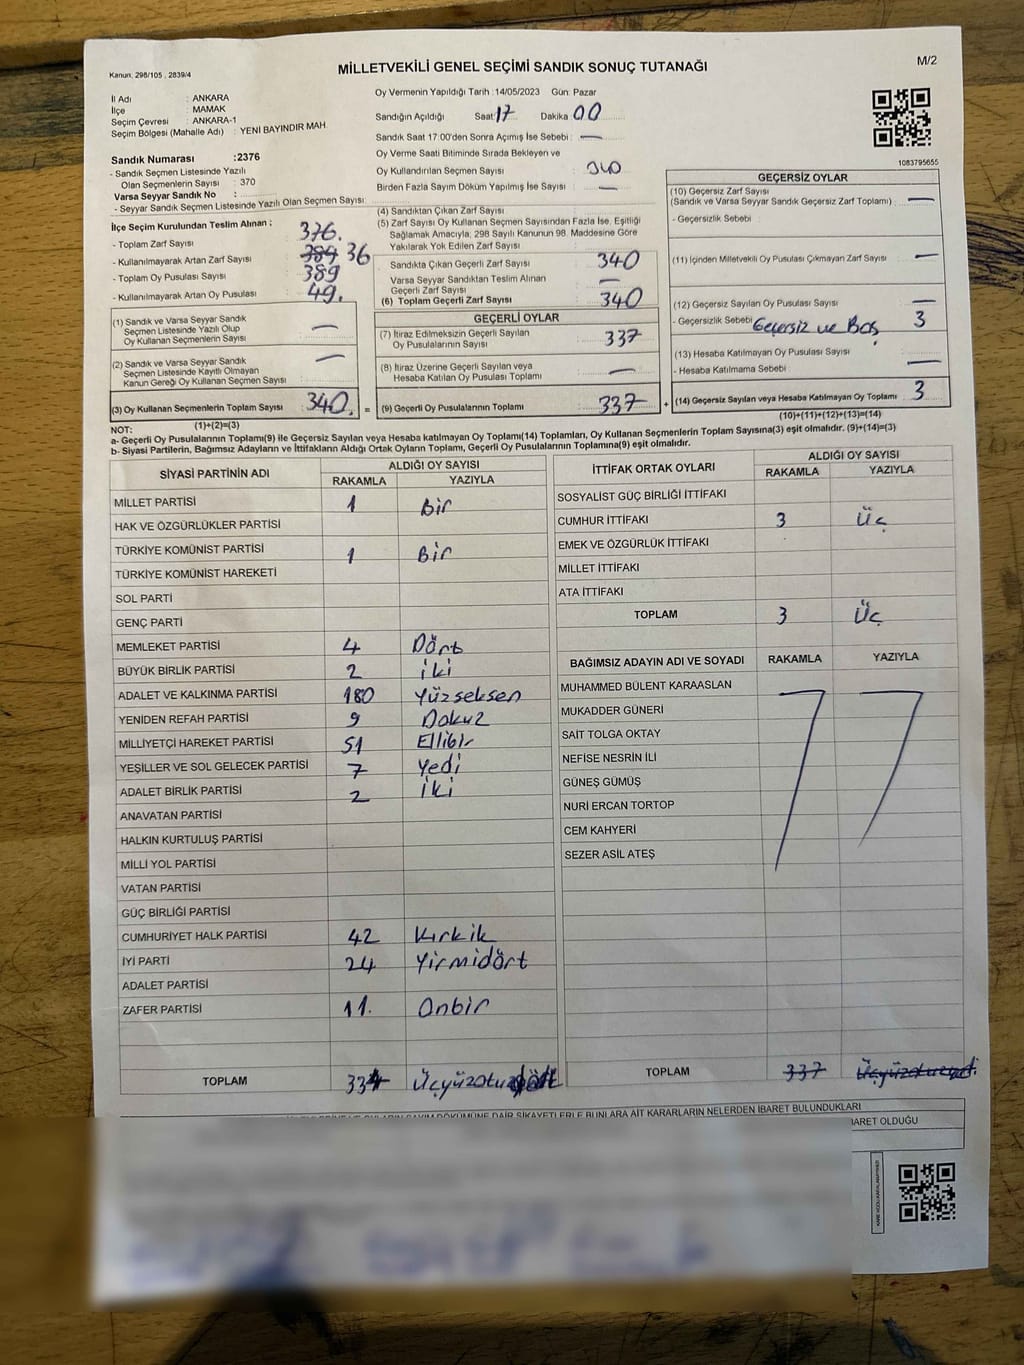 Kanun, 298/105 , 2839/4
MİLLETVEKİLİ GENEL SEÇİMİ SANDIK SONUÇ TUTANAĞI
M/2
İl Adı : ANKARA
İlçe : MAMAK
Seçim Çevresi : ANKARA-1
Seçim Bölgesi (Mahalle Adı) : YENİ BAYINDIR MAH.
Sandık Numarası :2376
- Sandık Seçmen Listesinde Yazılı
Olan Seçmenlerin Sayısı : 370
Varsa Seyyar Sandık No :
- Seyyar Sandık Seçmen Listesinde Yazılı Olan Seçmen Sayısı:
İlçe Seçim Kurulundan Teslim Alınan ;
- Toplam Zarf Sayısı 376.
- Kullanılmayarak Artan Zarf Sayısı 36
- Toplam Oy Pusulası Sayısı 389
- Kullanılmayarak Artan Oy Pusulası 49.
(1) Sandık ve Varsa Seyyar Sandık
Seçmen Listesinde Yazılı Olup
Oy Kullanan Seçmenlerin Sayısı : —
(2) Sandık ve Varsa Seyyar Sandık
Seçmen Listesinde Kayıtlı Olmayan
Kanun Gereği Oy Kullanan Seçmen Sayısı : —
(3) Oy Kullanan Seçmenlerin Toplam Sayısı 340.
(1)+(2)=(3)
Oy Vermenin Yapıldığı Tarih :14/05/2023 Gün: Pazar
Sandığın Açıldığı Saat: 17 Dakika: 00
Sandık Saat 17:00'den Sonra Açımış İse Sebebi : —
Oy Verme Saati Bitiminde Sırada Bekleyen ve
Oy Kullandırılan Seçmen Sayısı : 340
Birden Fazla Sayım Döküm Yapılmış İse Sayısı : —
(4) Sandıktan Çıkan Zarf Sayısı :
(5) Zarf Sayısı Oy Kullanan Seçmen Sayısından Fazla İse, Eşitliği
Sağlamak Amacıyla; 298 Sayılı Kanunun 98. Maddesine Göre
Yakılarak Yok Edilen Zarf Sayısı :
Sandıkta Çıkan Geçerli Zarf Sayısı 340
Varsa Seyyar Sandıktan Teslim Alınan
Geçerli Zarf Sayısı : —
(6) Toplam Geçerli Zarf Sayısı 340
GEÇERLİ OYLAR
(7) İtiraz Edilmeksizin Geçerli Sayılan
Oy Pusulalarının Sayısı : 337
(8) İtiraz Üzerine Geçerli Sayılan veya
Hesaba Katılan Oy Pusulası Toplamı : —
= (9) Geçerli Oy Pusulalarının Toplamı 337 +
1083795655
GEÇERSİZ OYLAR
(10) Geçersiz Zarf Sayısı
(Sandık ve Varsa Seyyar Sandık Geçersiz Zarf Toplamı) : —
- Geçersizlik Sebebi :
(11) İçinden Milletvekili Oy Pusulası Çıkmayan Zarf Sayısı : —
(12) Geçersiz Sayılan Oy Pusulası Sayısı : —
- Geçersizlik Sebebi Geçersiz ve Boş 3
(13) Hesaba Katılmayan Oy Pusulası Sayısı :
- Hesaba Katılmama Sebebi : —
(14) Geçersiz Sayılan veya Hesaba Katılmayan Oy Toplamı 3
(10)+(11)+(12)+(13)=(14)
NOT:
a- Geçerli Oy Pusulalarının Toplamı(9) ile Geçersiz Sayılan veya Hesaba katılmayan Oy Toplamı(14) Toplamları, Oy Kullanan Seçmenlerin Toplam Sayısına(3) eşit olmalıdır. (9)+(14)=(3)
b- Siyasi Partilerin, Bağımsız Adayların ve İttifakların Aldığı Ortak Oyların Toplamı, Geçerli Oy Pusulalarının Toplamına(9) eşit olmalıdır.
SİYASİ PARTİNİN ADI ALDIĞI OY SAYISI
RAKAMLA YAZIYLA
MİLLET PARTİSİ 1 Bir
HAK VE ÖZGÜRLÜKLER PARTİSİ
TÜRKİYE KOMÜNİST PARTİSİ 1 Bir
TÜRKİYE KOMÜNİST HAREKETİ
SOL PARTİ
GENÇ PARTİ
MEMLEKET PARTİSİ 4 Dört
BÜYÜK BİRLİK PARTİSİ 2 iki
ADALET VE KALKINMA PARTİSİ 180 Yüzseksen
YENİDEN REFAH PARTİSİ 9 Dokuz
MİLLİYETÇİ HAREKET PARTİSİ 51 Ellibir
YEŞİLLER VE SOL GELECEK PARTİSİ 7 Yedi
ADALET BİRLİK PARTİSİ 2 iki
ANAVATAN PARTİSİ
HALKIN KURTULUŞ PARTİSİ
MİLLİ YOL PARTİSİ
VATAN PARTİSİ
GÜÇ BİRLİĞİ PARTİSİ
CUMHURİYET HALK PARTİSİ 42 Kırkik
İYİ PARTİ 24 Yirmidört
ADALET PARTİSİ
ZAFER PARTİSİ 11. Onbir
TOPLAM 334 Üçyüzotuzdört
İTTİFAK ORTAK OYLARI ALDIĞI OY SAYISI
RAKAMLA YAZIYLA
SOSYALİST GÜÇ BİRLİĞİ İTTİFAKI
CUMHUR İTTİFAKI 3 Üç
EMEK VE ÖZGÜRLÜK İTTİFAKI
MİLLET İTTİFAKI
ATA İTTİFAKI
TOPLAM 3 Üç
BAĞIMSIZ ADAYIN ADI VE SOYADI RAKAMLA YAZIYLA
MUHAMMED BÜLENT KARAASLAN
MUKADDER GÜNERİ
SAİT TOLGA OKTAY
NEFİSE NESRİN İLİ
GÜNEŞ GÜMÜŞ
NURİ ERCAN TORTOP
CEM KAHYERİ
SEZER ASİL ATEŞ
TOPLAM 337
SAYIM DÖKÜMÜNE DAİR ŞİKAYETLERLE BUNLARA AİT KARARLARIN NELERDEN İBARET BULUNDUKLARI
İBARET OLDUĞU